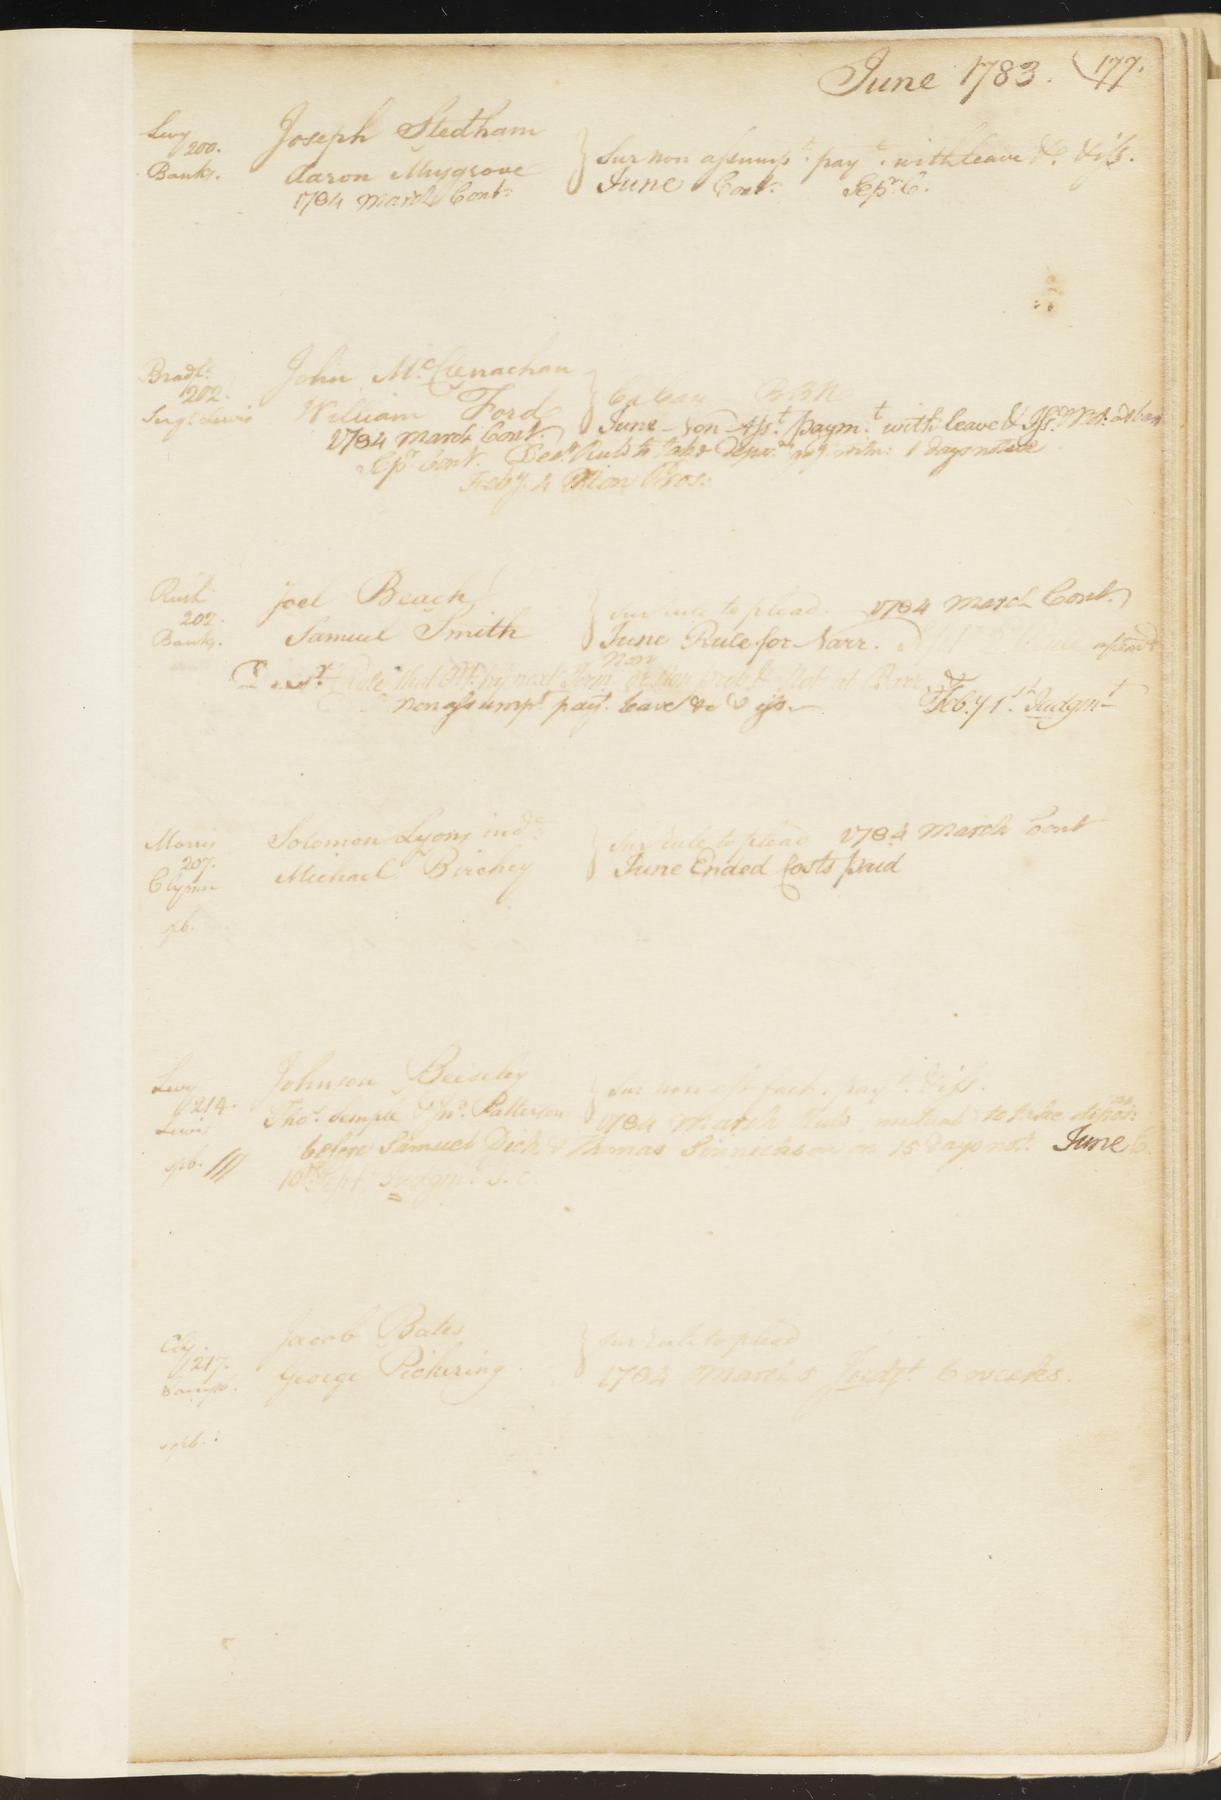 June 1783. (177.
Levy
200.
Banks.
Joseph Stedham
Aaron Musgrove
1784 March Cont:
Sur non assumpt. pay t. with leave &c. & iss.
June Cont: Sepr. C.
Bradf:
202.
Sergt. Lewis
John McClenachan
William Ford
1784 March Cont.
June Non Asst. paymt. with leave &
Sepr. Cont. Rule to take 1 days notice
Feby. 4 Non Pros:
Rush
202.
Banks.
Joel Beach
Samuel Smith
Sur rule to plead. 1784 March Cont.
June Rule for Narr.
Non
Rule that next Term at Barr &
non assumpt. payt. leave &c & iss.
Feb. y 1st. Judgmt
Morris
207.
Clymer
spb.
Solomon Lyons ind:
Michael Birchey
Sur rule to plead 1784 March Cont
June Ended Costs paid
Levy
214.
Lewis
spb. ///
Johnson Beiseley
Thos. Semple & Patterson
Sur non est fact. pay t. & iss.
1784 March Rule mutual to take deposns:
before Samuel Dick & Thomas Sinnickson on 15 days not. June C.
10th. Sept. Judgmt.
217.
spb.
Jacob Bates
George Pickering
Sur rule to plead
1784 March 5 Judgt. 6 weeks.